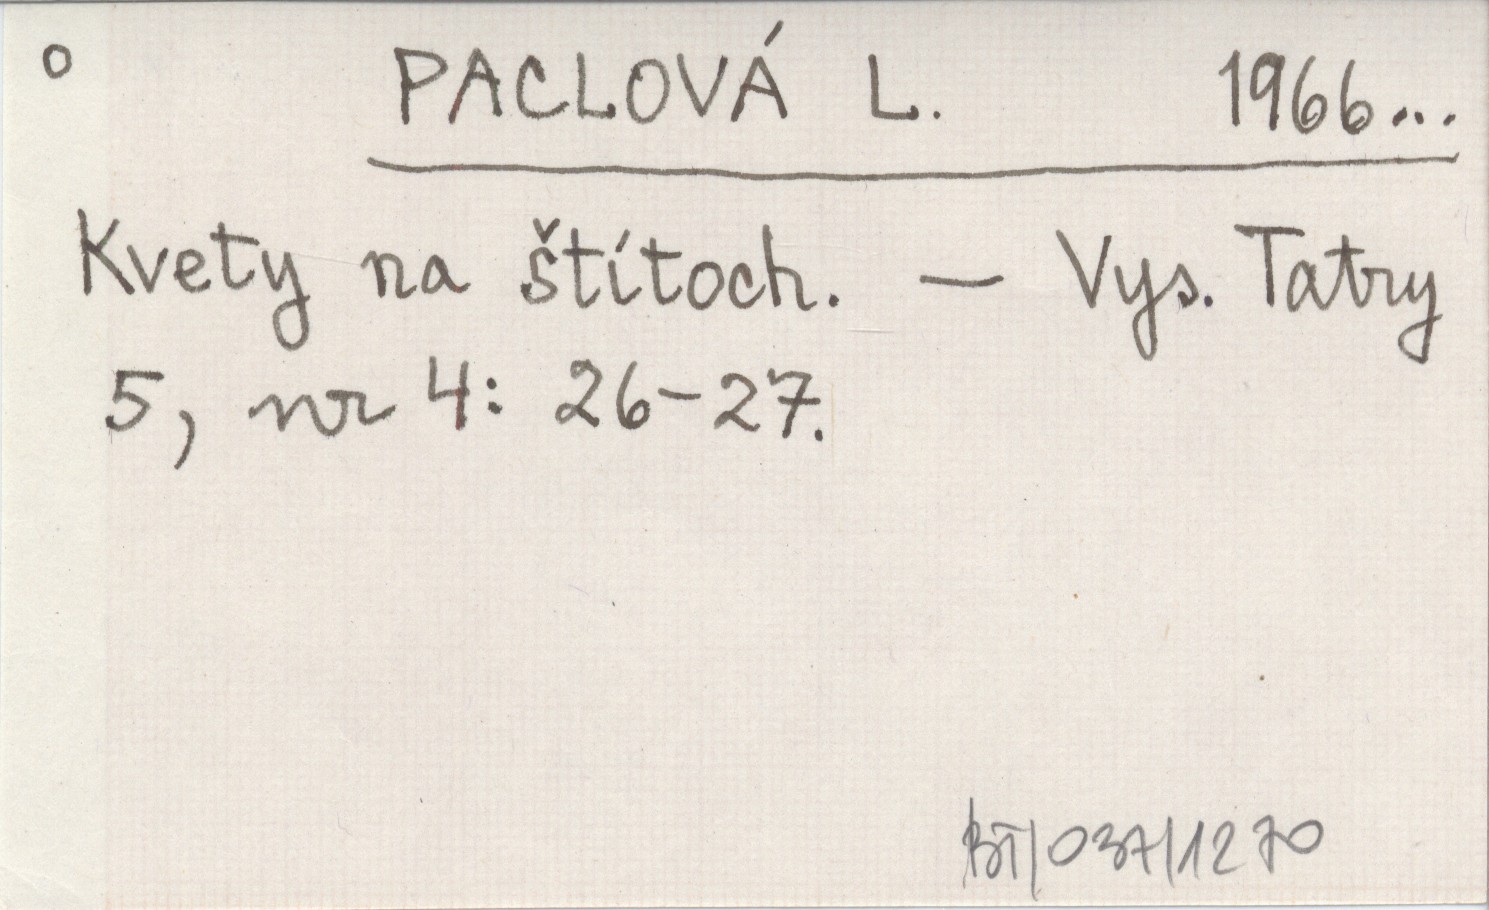 o PACLOVÁ L. 1966...
Kvety na štítoch. — Vys. Tatry
5, nr 4: 26-27.
BT/037/1270